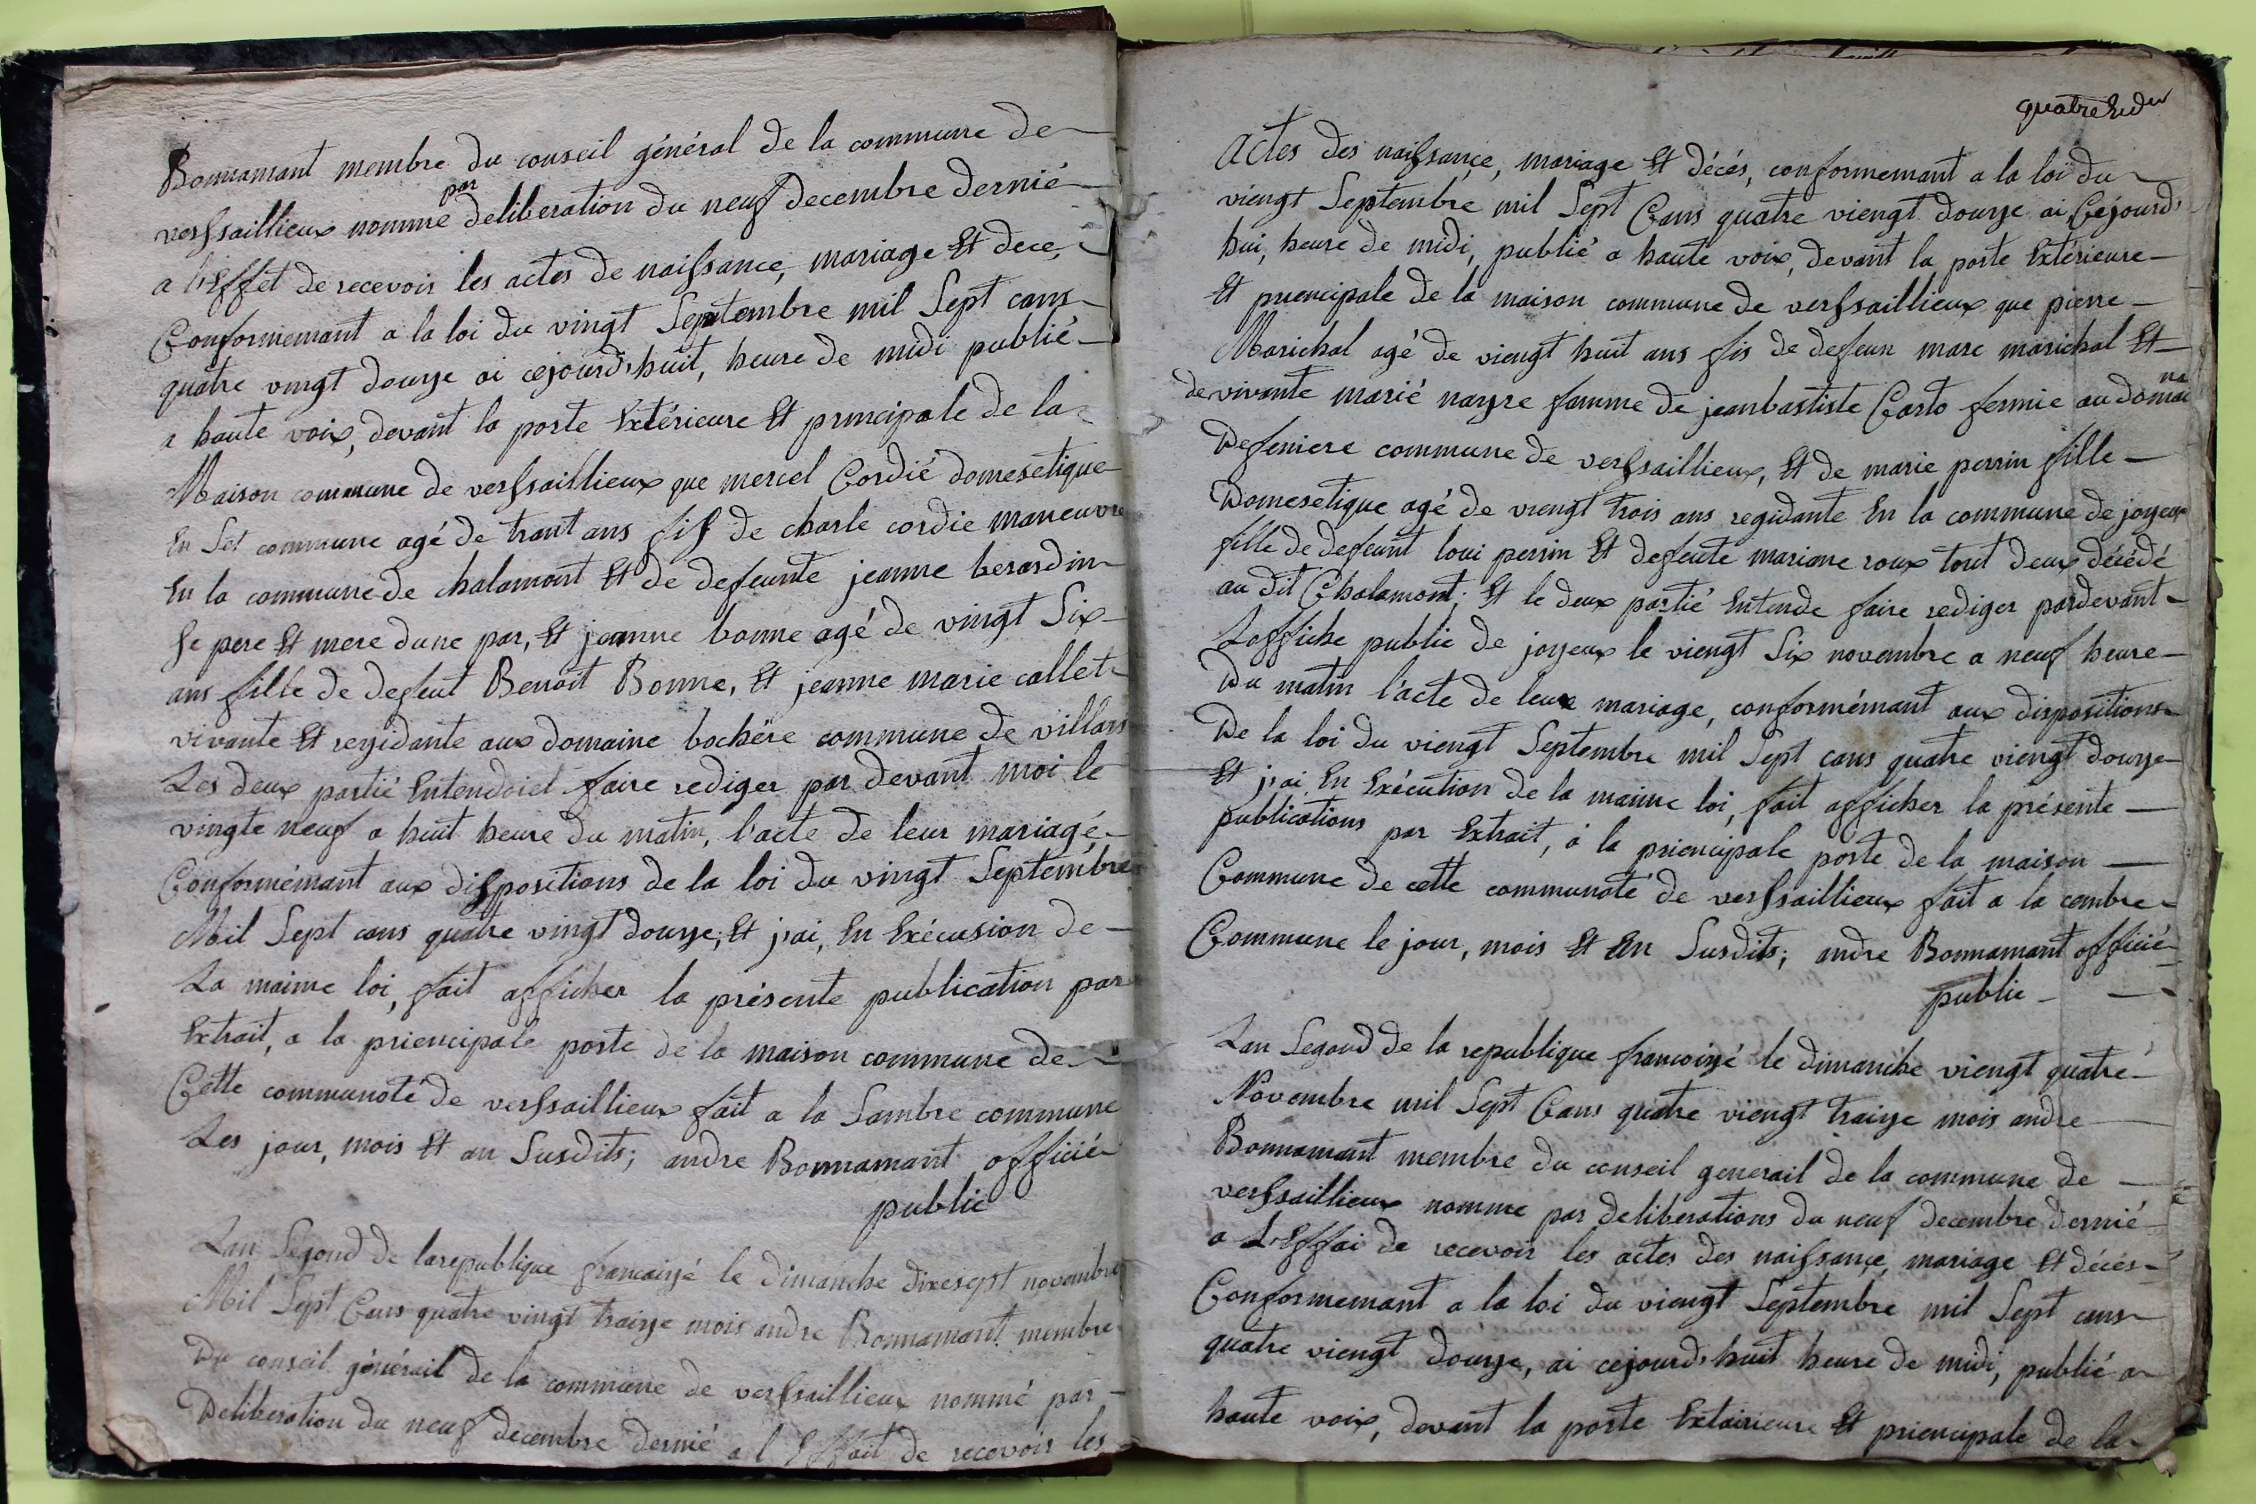 Bonnamant membre du conseil général de la commune de
verssaillieux nommé par deliberation du neuf decembre dernié
a l'Effet de recevoir les actes de naissance, mariage Et dece,
Conformemant a la loi du vingt Septembre mil Sept cans
quatre vingt douze ai cejourd'huit, heure de midi publié
a haute voix, devant la porte Extérieure Et principale de la
Maison commune de verssaillieux que mercel Cordié domesetique
En Set commune agé de trant ans fis de charle cordie maneuvre
En la commune de chalamont Et de defeunte jeanne berardin
se pere Et mere dune par, Et jeanne bonne agé de vingt Six
ans fille de defeut Benoit Bonne, Et jeanne marie collet
vivante Et rezidante aux domaine bochère commune de villars
Les deux partié Entendoiet faire rediger par devant moi le
vingte neuf a huit heure du matin, l'acte de leur mariagé
Conformémant aux dispositions de la loi du vingt Septembre
Mil Sept cans quatre vingt douze, Et j'ai, En Exécusion de
La maime loi, fait afficher la présente publication par
Extrait, a la priencipale porte de la maison commune de
Cette communoté de verssaillieux fait a la Sambre commune
Les jour, mois Et an Susdits; andre Bonnamant officié
public
Lan Segond de larepublique francaizé le dimanche dixesept novembre
Mil Sept Cans quatre vingt traize mois andre Bonnamant membre
Du conseil générail de la commune de verssaillieux nommé par
Deliberation du neuf decembre dernié a l'Effait de recevoir les
quatre
Actes des naissance, mariage Et décés, conformemant a la loi du
viengt Septembre mil Sept Cans quatre viengt douze ai Cejourd'
hui, heure de midi, publié a haute voix, devant la porte Extérieure
Et priencipale de la maison commune de verssaillieux que pierre
Marichal agé de viengt huit ans fis de defeun marc marichal Et
de vivante marié nayre famme de jeanbastiste Carto fermie au domai na
Defeniere commune de verssaillieux, Et de marie perrin fille
Domesetique agé de viengt trois ans rezidante En la commune de joyeux
fille de defeunt loui perrin Et defeute mariane roux tout deux décédé
au dit Chalamont; Et le deux partié Entende faire rediger pardevant
Laffiche public de joyeux le viengt Six novembre a neuf heure
Du matin l'acte de leux mariage, conformémant aux dispositions
De la loi du viengt Septembre mil Sept cans quatre viengt douze
Et j'ai En Exécution de la maime loi, fait afficher la présente
publications par Extrait, a la priencipale porte de la maison
Commune de cette communoté de verssaillieux fait a la cembre
Commune le jour, mois Et En Susdits; andre Bonnamant officié
public
Lan Segond de la republique francoizé le dimanche viengt quatre
Novembre mil Sept Cans quatre viengt traize mois andre
Bonnamant membre du conseil generail de la commune de
verssaillieux nomme par deliberations du neuf decembre dernié
a L'Effai de recevoir les actes des naissance, mariage Et décés
Conformemant a la loi du viengt Septembre mil Sept cans
quatre viengt douze, ai cejourd'huit heure de midi, publié a
haute voix, devant la porte Extairieure Et priencipale de la